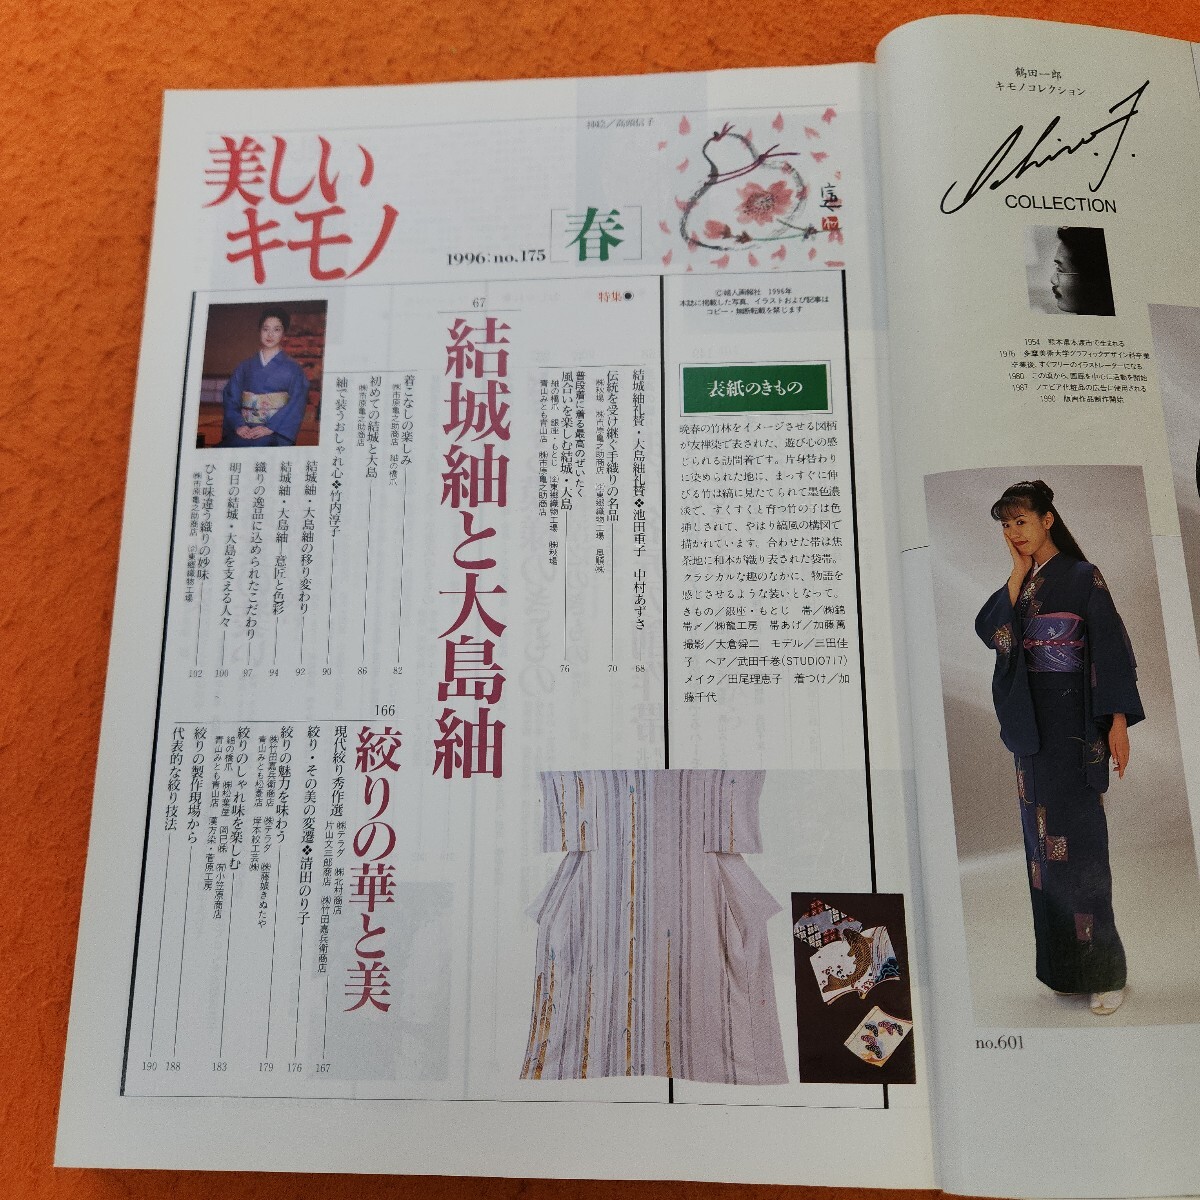 挿絵/高頭信子
美しい
キモノ
1996:no.175
[春]
©婦人画報社 1996年
本誌に掲載した写真、イラストおよび記事は
コピー・無断転載を禁じます
特集●
67
結城紬と大島紬
結城紬礼賛・大島紬礼賛❖池田重子 中村あずさ 68
伝統を受け継ぐ手織りの名品 70
普段着に着る最高のぜいたく
風合いを楽しむ結城・大島 76
紬の橋爪 銀座・もとじ ㈲東郷織物工場 ㈱秋場
青山みとも青山店 ㈱市原亀之助商店
着こなしの楽しみ 82
㈱市原亀之助商店 紬の橋爪
初めての結城と大島 86
㈱市原亀之助商店
紬で装うおしゃれ心❖竹内淳子 90
結城紬・大島紬の移り変わり 92
結城紬・大島紬 意匠と色彩 94
織りの逸品に込められたこだわり 97
明日の結城・大島を支える人々 100
ひと味違う織りの妙味 102
㈱市原亀之助商店 ㈲東郷織物工場
166
絞りの華と美
現代絞り秀作選 167
㈱テラダ ㈱北村商店
片山文三郎商店 ㈱竹田嘉兵衛商店
絞り・その美の変遷❖清田のり子 176
絞りの魅力を味わう 179
㈱竹田嘉兵衛商店 ㈱テラダ ㈱藤娘きぬたや
青山みとも松壽店 岸本絞工芸㈱
絞りのしゃれ味を楽しむ 183
絽の橋爪 ㈱松葉屋 岡巳㈱ ㈲小笠原商店
青山みとも青山店 漢方染・菅原工房
絞りの製作現場から 188
代表的な絞り技法 190
表紙のきもの
晩春の竹林をイメージさせる図柄
が友禅染で表された、遊び心の感
じられる訪問着です。片身替わり
に染められた地に、まっすぐに伸
びる竹は縞に見たてられて墨色濃
淡で、すくすくと育つ竹の子は色
挿しされて、やはり縞風の構図で
描かれています。合わせた帯は焦
茶地に和本が織り表された袋帯。
クラシカルな趣のなかに、物語を
感じさせるような装いとなって。
きもの/銀座・もとじ 帯/㈱錦
帯〆/㈱龍工房 帯あげ/加藤萬
撮影/大倉舜二 モデル/三田佳
子 ヘア/武田千巻(STUDiO717)
メイク/田尾理恵子 着つけ/加
藤千代
鶴田一郎
キモノコレクション
Ichiro.T.
COLLECTION
1954 熊本県本渡市で生まれる
1976 多摩美術大学グラフィックデザイン科卒業
卒業後、すぐフリーのイラストレーターになる
1980 この頃から、画廊を中心に活動を開始
1987 ノエビア化粧品の広告に使用される
1990 版画作品制作開始
no.601